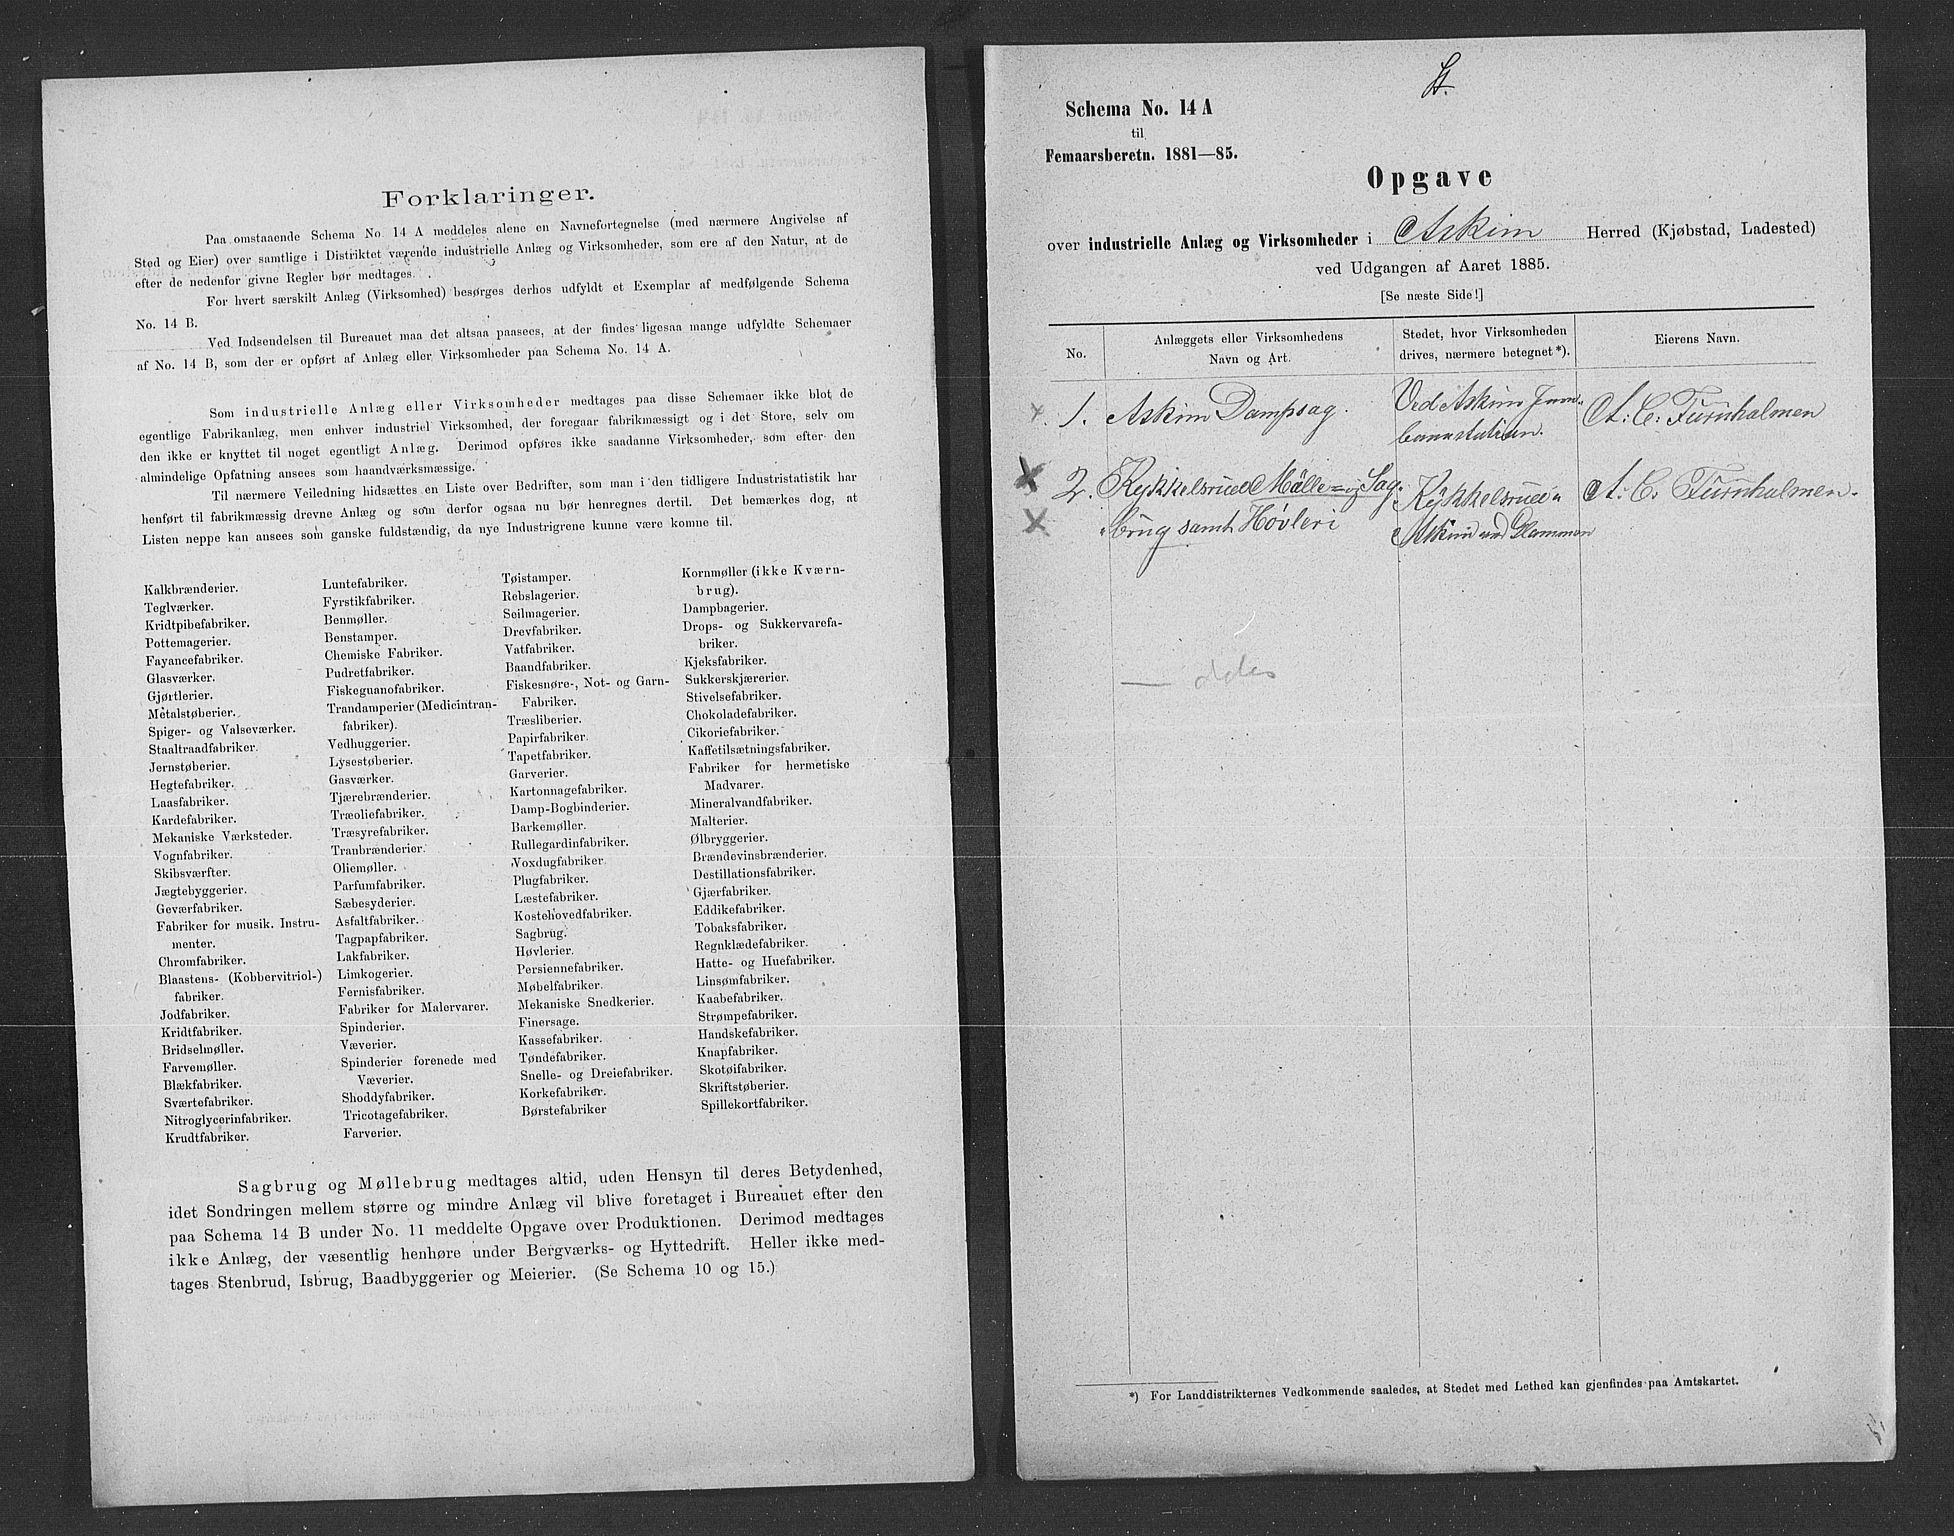 Forklaringer.
Paa omstaaende Schema No. 14 A meddeles alene en Navnefortegnelse (med nærmere Angivelse af
Sted og Eier) over samtlige i Distriktet værende industrielle Anlæg og Virksomheder, som ere af den Natur, at de
efter de nedenfor givne Regler bør medtages.
For hvert særskilt Anlæg (Virksomhed) besørges derhos udfyldt et Exemplar af medfølgende Schema
No. 14 B.
Ved Indsendelsen til Bureauet maa det altsaa paasees, at der findes ligesaa mange udfyldte Schemaer
af No. 14 B, som der er opført af Anlæg eller Virksomheder paa Schema No. 14 A.
Som industrielle Anlæg eller Virksomheder medtages paa disse Schemaer ikke blot de
egentlige Fabrikanlæg, men enhver industriel Virksomhed, der foregaar fabrikmæssigt og i det Store, selv om
den ikke er knyttet til noget egentligt Anlæg. Derimod opføres ikke saadanne Virksomheder, som efter den
almindelige Opfatning ansees som haandværksmæssige.
Til nærmere Veiledning hidsættes en Liste over Bedrifter, som man i den tidligere Industristatistik har
henført til fabrikmæssig drevne Anlæg og som derfor ogsaa nu bør henregnes dertil. Det bemærkes dog, at
Listen neppe kan ansees som ganske fuldstændig, da nye Industrigrene kunne være komne til.
Kalkbrænderier.
Teglværker.
Kridtpibefabriker.
Pottemagerier.
Fayancefabriker.
Glasværker.
Gjørtlerier.
Metalstøberier.
Spiger- og Valseværker.
Staaltraadfabriker.
Jernstøberier.
Hegtefabriker.
Laasfabriker.
Kardefabriker.
Mekaniske Værksteder.
Vognfabriker.
Skibsværfter.
Jægtebyggerier.
Geværfabriker.
Fabriker for musik. Instru-
menter.
Chromfabriker.
Blaastens- (Kobbervitriol-)
fabriker.
Jodfabriker.
Kridtfabriker.
Bridselmøller.
Farvemøller.
Blækfabriker.
Sværtefabriker.
Nitroglycerinfabriker.
Krudtfabriker.
Luntefabriker.
Fyrstikfabriker.
Benmøller.
Benstamper.
Chemiske Fabriker.
Pudretfabriker.
Fiskeguanofabriker.
Trandamperier (Medicintran-
fabriker).
Vedhuggerier.
Lysestøberier.
Gasværker.
Tjærebrænderier.
Træoliefabriker.
Træsyrefabriker.
Tranbrænderier.
Oliemøller.
Parfumfabriker.
Sæbesyderier.
Asfaltfabriker.
Tagpapfabriker.
Lakfabriker.
Limkogerier.
Fernisfabriker.
Fabriker for Malervarer.
Spinderier.
Væverier.
Spinderier forenede med
Væverier.
Shoddyfabriker.
Tricotagefabriker.
Farverier.
Tøistamper.
Rebslagerier.
Seilmagerier.
Drevfabriker.
Vatfabriker.
Baandfabriker.
Fiskesnøre-, Not- og Garn-
Fabriker.
Træsliberier.
Papirfabriker.
Tapetfabriker.
Garverier.
Kartonnagefabriker.
Damp-Bogbinderier.
Barkemøller.
Rullegardinfabriker.
Voxdugfabriker
Plugfabriker.
Læstefabriker.
Kostehovedfabriker.
Sagbrug.
Høvlerier.
Persiennefabriker.
Møbelfabriker.
Mekaniske Snedkerier.
Finersage.
Kassefabriker.
Tøndefabriker.
Snelle- og Dreiefabriker.
Korkefabriker.
Børstefabriker
Kornmøller (ikke Kværn-
brug).
Dampbagerier.
Drops- og Sukkervarefa-
briker.
Kjeksfabriker.
Sukkerskjærerier.
Stivelsefabriker.
Chokoladefabriker.
Cikoriefabriker.
Kaffetilsætningsfabriker.
Fabriker for hermetiske
Madvarer.
Mineralvandfabriker.
Malterier.
Ølbryggerier.
Brændevinsbrænderier.
Destillationsfabriker.
Gjærfabriker.
Eddikefabriker.
Tobaksfabriker.
Regnklædefabriker.
Hatte- og Huefabriker.
Linsømfabriker.
Kaabefabriker.
Strømpefabriker.
Handskefabriker.
Knapfabriker.
Skotøifabriker.
Skriftstøberier.
Spillekortfabriker.
Sagbrug og Møllebrug medtages altid, uden Hensyn til deres Betydenhed,
idet Sondringen mellem større og mindre Anlæg vil blive foretaget i Bureauet efter den
paa Schema 14 B under No. 11 meddelte Opgave over Produktionen. Derimod medtages
ikke Anlæg, der væsentlig henhøre under Bergværks- og Hyttedrift. Heller ikke med-
tages Stenbrud, Isbrug, Baadbyggerier og Meierier. (Se Schema 10 og 15.)
Schema No. 14 A
til
Femaarsberetn. 1881—85.
Opgave
over industrielle Anlæg og Virksomheder i Askim Herred (Kjøbstad, Ladested)
ved Udgangen af Aaret 1885.
[Se næste Side!]
No.
Anlæggets eller Virksomhedens
Navn og Art.
Stedet, hvor Virksomheden
drives, nærmere betegnet*).
Eierens Navn.
1. Askim Dampsag. Ved Askim Jern-
banestation. A. C. Furuholmen
2. Rykkelsrud Mölle- og Sag-
brug samt Hövleri Kykkelsrud i
Askim ved Glommen A. C. Furuholmen.
*) For Landdistrikternes Vedkommende saaledes, at Stedet med Lethed kan gjenfindes paa Amtskartet.